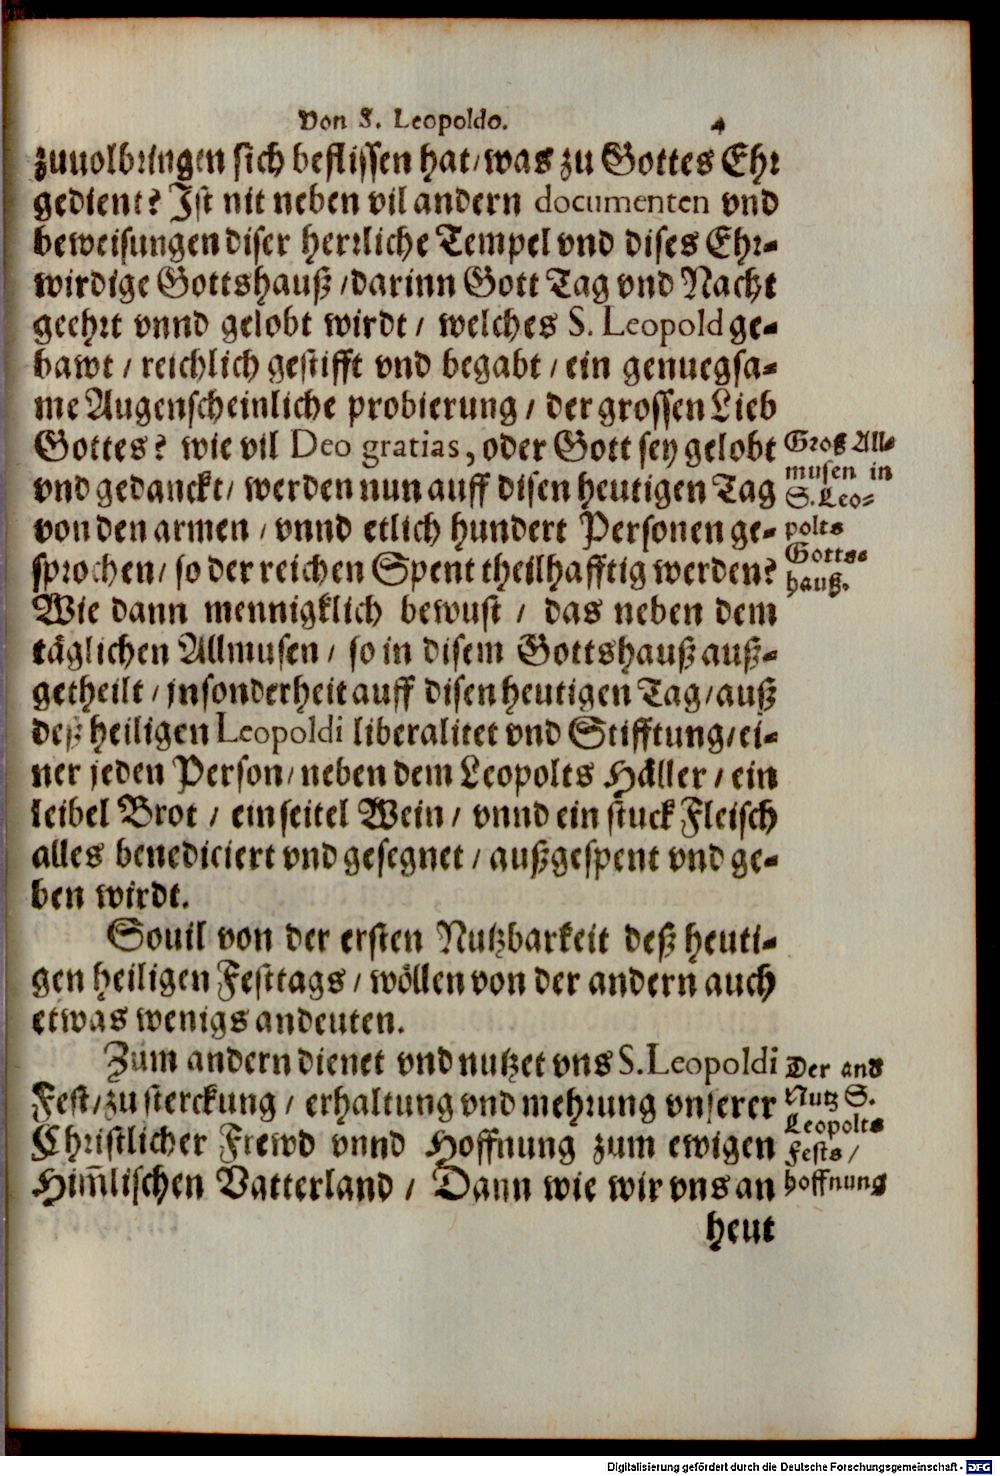 Von S. Leopoldo. 4
zuuolbringen sich beflissen hat/was zu Gottes Ehr
gedient? Ist nit neben vil andern documenten vnd
beweisungen diser herrliche Tempel vnd dises Ehr-
wirdige Gottshauß/darinn Gott Tag vnd Nacht
geehrt vnnd gelobt wirdt/ welches S. Leopold ge-
bawt/ reichlich gestifft vnd begabt/ ein genuegsa-
me Augenscheinliche probierung/ der grossen Lieb
Gottes? wie vil Deo gratias, oder Gott sey gelobt
vnd gedanckt/ werden nun auff disen heutigen Tag
von den armen/ vnnd etlich hundert Personen ge-
sprochen/ so der reichen Spent theilhafftig werden?
Wie dann mennigklich bewust/ das neben dem
täglichen Allmusen/ so in disem Gottshauß auß-
getheilt/ jnsonderheit auff disen heutigen Tag/auß
deß heiligen Leopoldi liberalitet vnd Stifftung/ei-
ner jeden Person/ neben dem Leopolts Häller/ ein
leibel Brot/ ein seitel Wein/ vnnd ein stuck Fleisch
alles benediciert vnd gesegnet/ außgespent vnd ge-
ben wirdt.
Groß All-
musen in
S. Leo-
polts
Gotts-
hauß.
Souil von der ersten Nutzbarkeit deß heuti-
gen heiligen Festtags/ wöllen von der andern auch
etwas wenigs andeuten.
Zum andern dienet vnd nutzet vns S. Leopoldi
Fest/zu sterckung/ erhaltung vnd mehrung vnserer
Christlicher Frewd vnnd Hoffnung zum ewigen
Him̃lischen Vatterland/ Dann wie wir vns an
Der and
Nutz S.
Leopolts
Fests/
hoffnung
heut
Digitalisierung gefördert durch die Deutsche Forschungsgemeinschaft - DFG